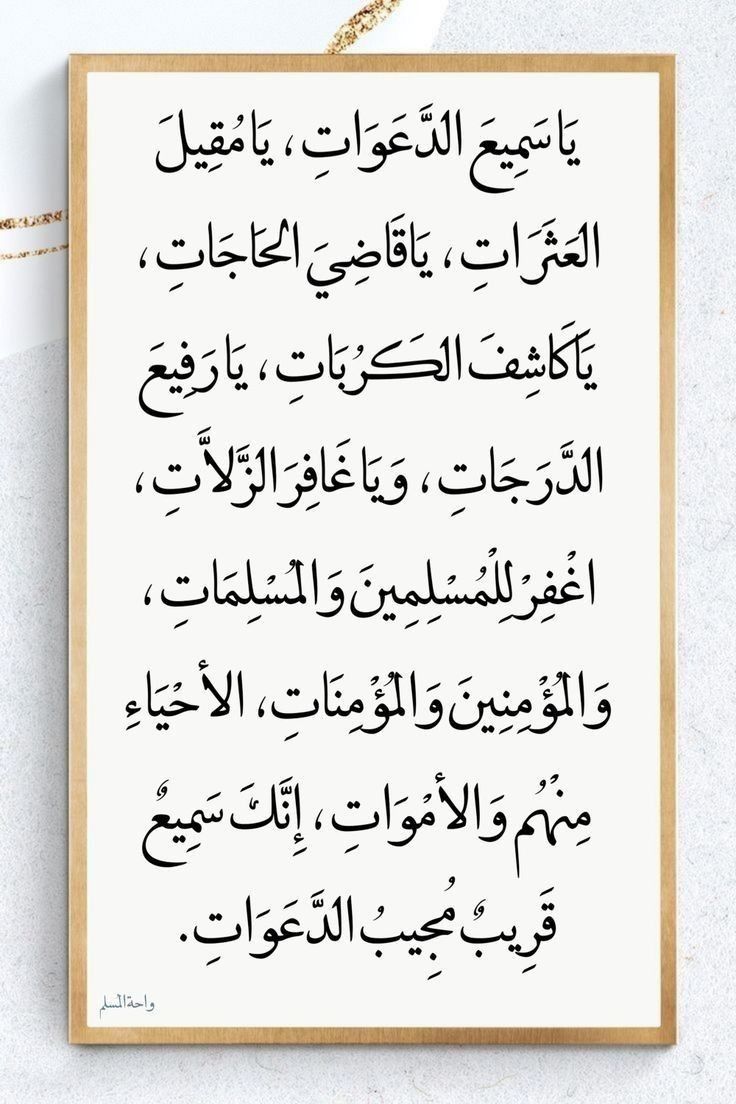 يَا سَمِيعَ الدَّعَوَاتِ، يَا مُقِيلَ
العَثَرَاتِ، يَا قَاضِيَ الحَاجَاتِ،
يَا كَاشِفَ الكَرُبَاتِ، يَا رَفِيعَ
الدَّرَجَاتِ، وَيَا غَافِرَ الزَّلاَّتِ،
اغْفِرْ لِلْمُسْلِمِينَ وَالمُسْلِمَاتِ،
وَالمُؤْمِنِينَ وَالمُؤْمِنَاتِ، الأحْيَاءِ
مِنْهُم وَالأمْوَاتِ، إِنَّكَ سَمِيعٌ
قَرِيبٌ مُجِيبُ الدَّعَوَاتِ.
واحة المسلم